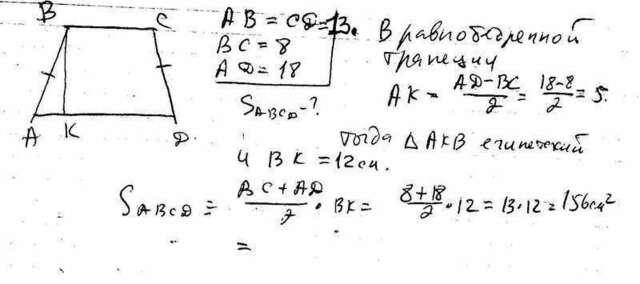 B C
A K D
AB = CD = 13.
BC = 8
AD = 18
S_ABCD - ?
В равнобедренной
трапеции
AK = (AD - BC)/2 = (18-8)/2 = 5.
тогда △AKB египетский
и BK = 12 см.
S_ABCD = (BC + AD)/2 · BK = (8+18)/2 · 12 = 13·12 = 156 см²
=